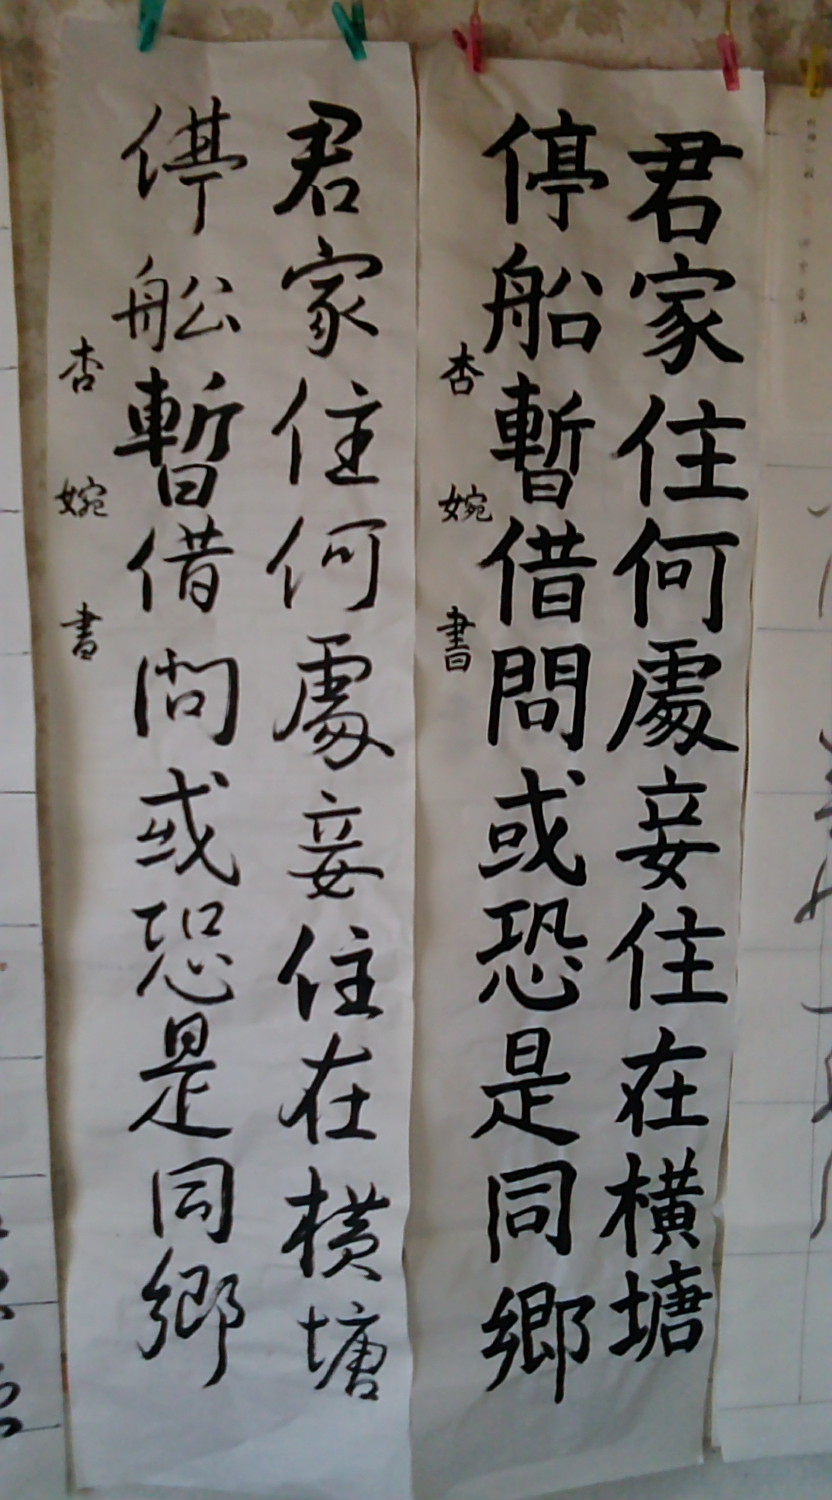 君家住何處妾住在橫塘
停船暫借問或恐是同鄉
杏婉書
君家住何處妾住在橫塘
停船暫借問或恐是同鄉
杏婉書